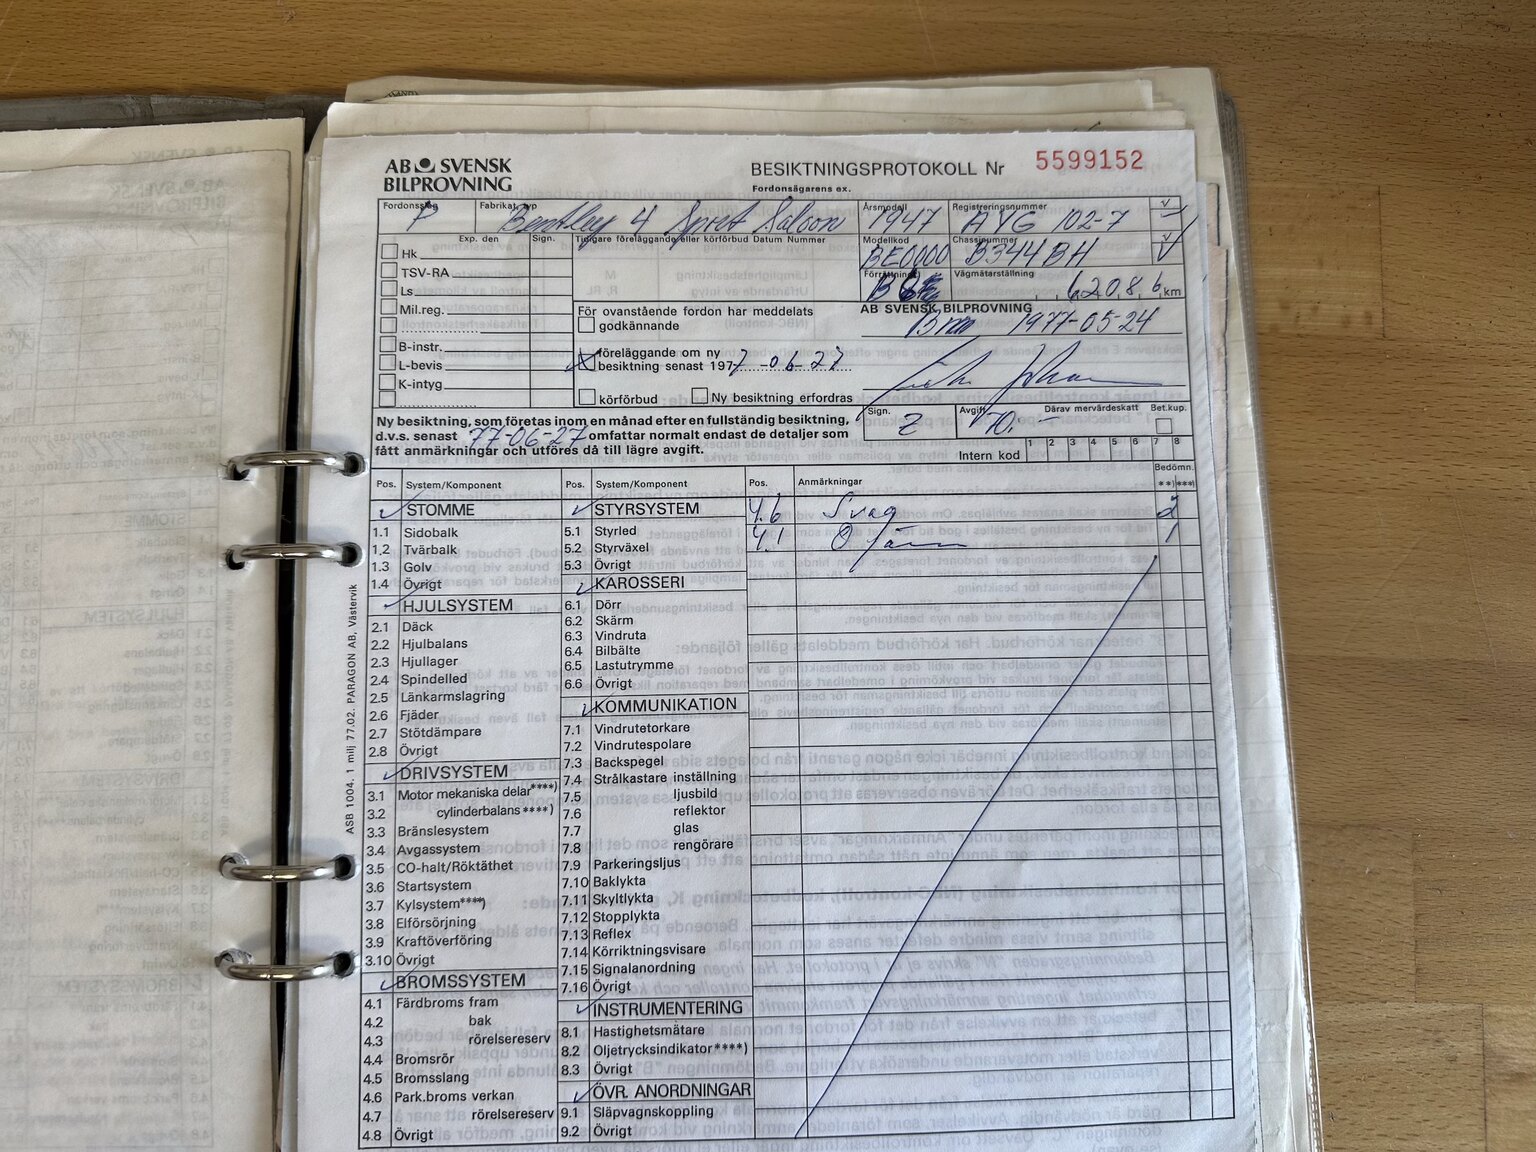 AB SVENSK
BILPROVNING
BESIKTNINGSPROTOKOLL Nr 5599152
Fordonsägarens ex.
Fordonsslag Fabrikat, typ Årsmodell Registreringsnummer
P Bentley 4 Sport Saloon 1947 AYG 102-7
Exp. den Sign. Tidigare föreläggande eller körförbud Datum Nummer Modellkod Chassinummer
Hk BE0000 B344BH
TSV-RA Förrättning Vägmätarställning
Ls 62086 km
Mil.reg. För ovanstående fordon har meddelats AB SVENSK BILPROVNING
godkännande 1977-05-24
B-instr.
L-bevis föreläggande om ny
besiktning senast 1977-06-27
K-intyg körförbud Ny besiktning erfordras
Ny besiktning, som företas inom en månad efter en fullständig besiktning,
d.v.s. senast 77-06-27 omfattar normalt endast de detaljer som
fått anmärkningar och utföres då till lägre avgift.
Sign. Avgift Därav mervärdeskatt Bet.kup.
70:-
Intern kod 1 2 3 4 5 6 7 8
Pos. System/Komponent Pos. System/Komponent Pos. Anmärkningar Bedömn.
**) ***)
STOMME
1.1 Sidobalk
1.2 Tvärbalk
1.3 Golv
1.4 Övrigt
HJULSYSTEM
2.1 Däck
2.2 Hjulbalans
2.3 Hjullager
2.4 Spindelled
2.5 Länkarmslagring
2.6 Fjäder
2.7 Stötdämpare
2.8 Övrigt
DRIVSYSTEM
3.1 Motor mekaniska delar****)
3.2 cylinderbalans****)
3.3 Bränslesystem
3.4 Avgassystem
3.5 CO-halt/Röktäthet
3.6 Startsystem
3.7 Kylsystem****)
3.8 Elförsörjning
3.9 Kraftöverföring
3.10 Övrigt
BROMSSYSTEM
4.1 Färdbroms fram
4.2 bak
4.3 rörelsereserv
4.4 Bromsrör
4.5 Bromsslang
4.6 Park.broms verkan
4.7 rörelsereserv
4.8 Övrigt
STYRSYSTEM
5.1 Styrled
5.2 Styrväxel
5.3 Övrigt
KAROSSERI
6.1 Dörr
6.2 Skärm
6.3 Vindruta
6.4 Bilbälte
6.5 Lastutrymme
6.6 Övrigt
KOMMUNIKATION
7.1 Vindrutetorkare
7.2 Vindrutespolare
7.3 Backspegel
7.4 Strålkastare inställning
7.5 ljusbild
7.6 reflektor
7.7 glas
7.8 rengörare
7.9 Parkeringsljus
7.10 Baklykta
7.11 Skyltlykta
7.12 Stopplykta
7.13 Reflex
7.14 Körriktningsvisare
7.15 Signalanordning
7.16 Övrigt
INSTRUMENTERING
8.1 Hastighetsmätare
8.2 Oljetrycksindikator****)
8.3 Övrigt
ÖVR. ANORDNINGAR
9.1 Släpvagnskoppling
9.2 Övrigt
4.6 Svag 2
4.1 Ojämn 1
ASB 1004. 1 milj 77.02. PARAGON AB, Västervik